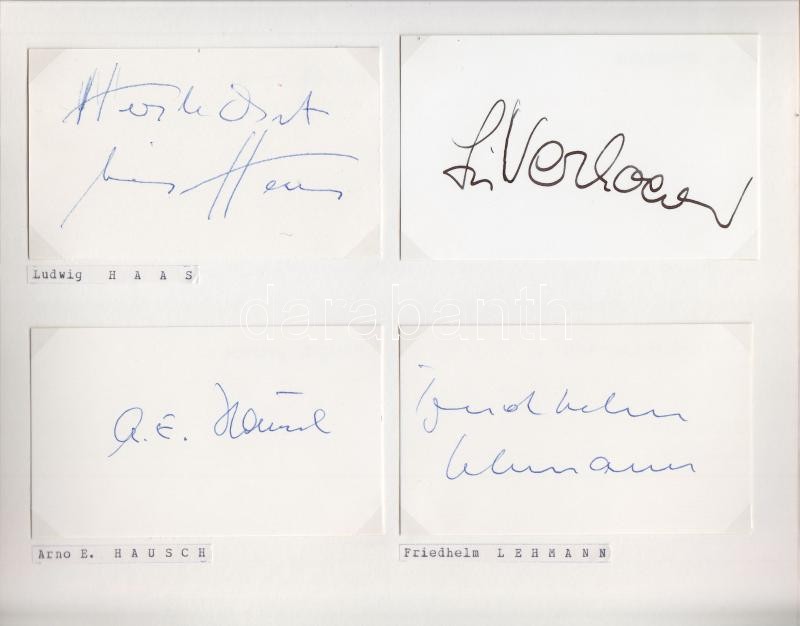 Haas
Verhoeven
Ludwig H A A S
darabanth
A. E. Hausch
Friedhelm
Lehmann
Arno E. H A U S C H
Friedhelm L E H M A N N